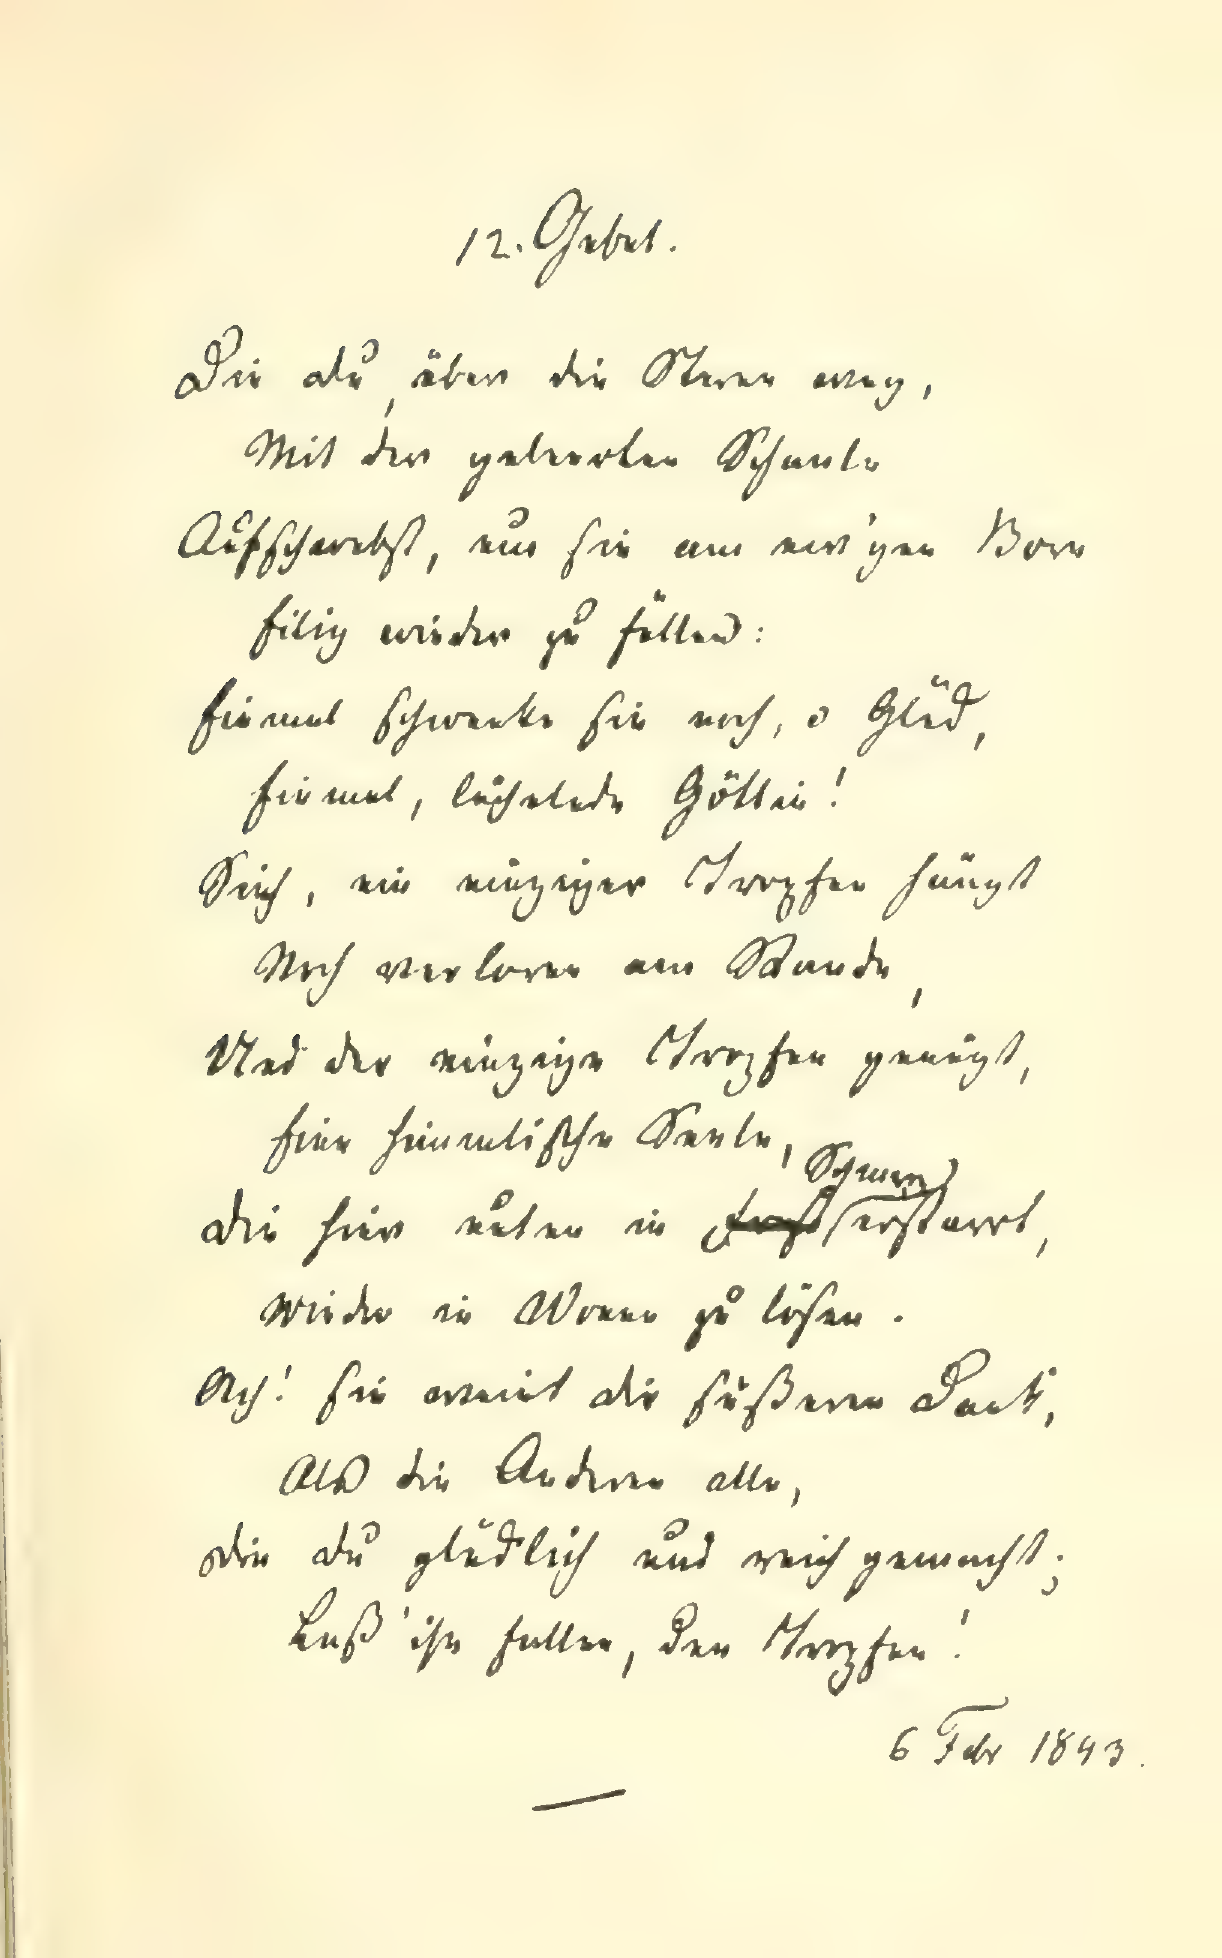 12. Gebet.
Die du, über die Sterne weg,
Mit der geleerten Schaale
Aufschwebst, um sie am ew'gen Born
Eilig wieder zu füllen:
Einmal schwenke sie noch, o Glück,
Einmal, lächelnde Göttin!
Sieh, ein einziger Tropfen hängt
Noch verloren am Rande,
Und der einzige Tropfen genügt,
Eine himmlische Seele,
Schmerz
Die hier unten in erstarrt,
Wieder in Wonne zu lösen.
Ach! sie weint dir süßeren Dank,
Als die Anderen alle,
Die du glücklich und reich gemacht;
Laß' ihn fallen, den Tropfen!
6 Febr 1843.